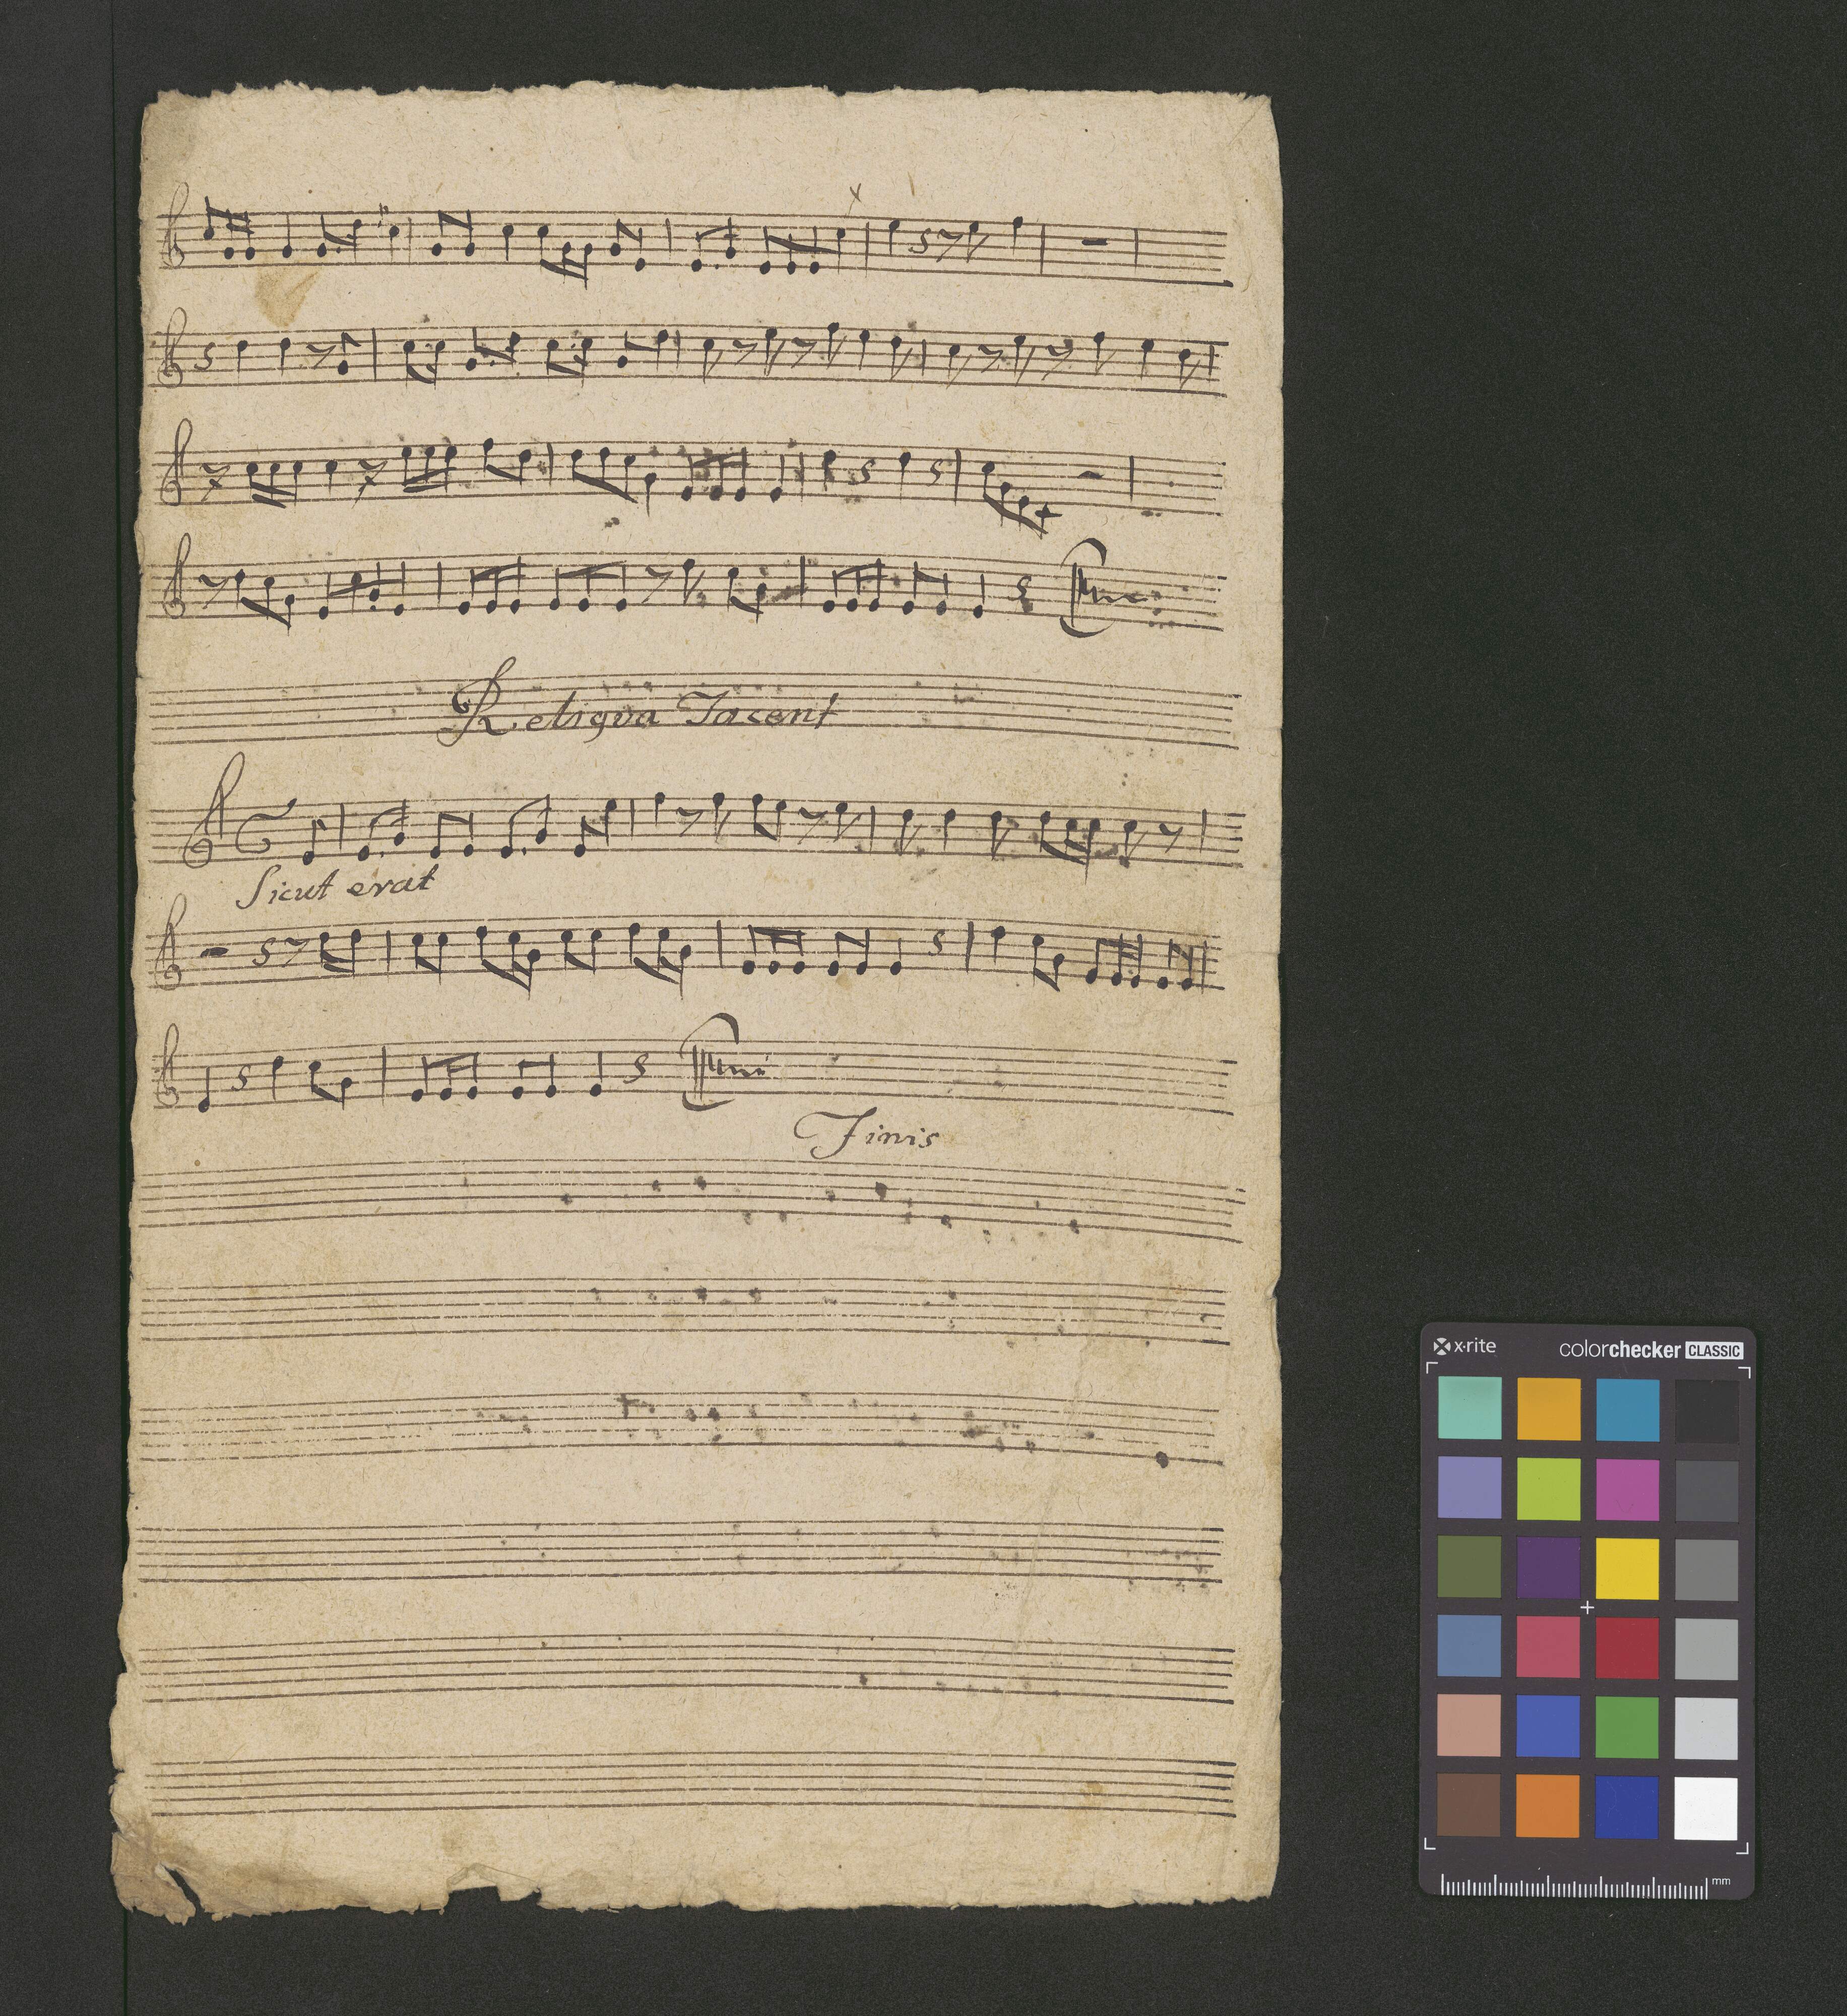 Reliqva Tacent
Sicut erat
Finis
x-rite
colorchecker CLASSIC
mm